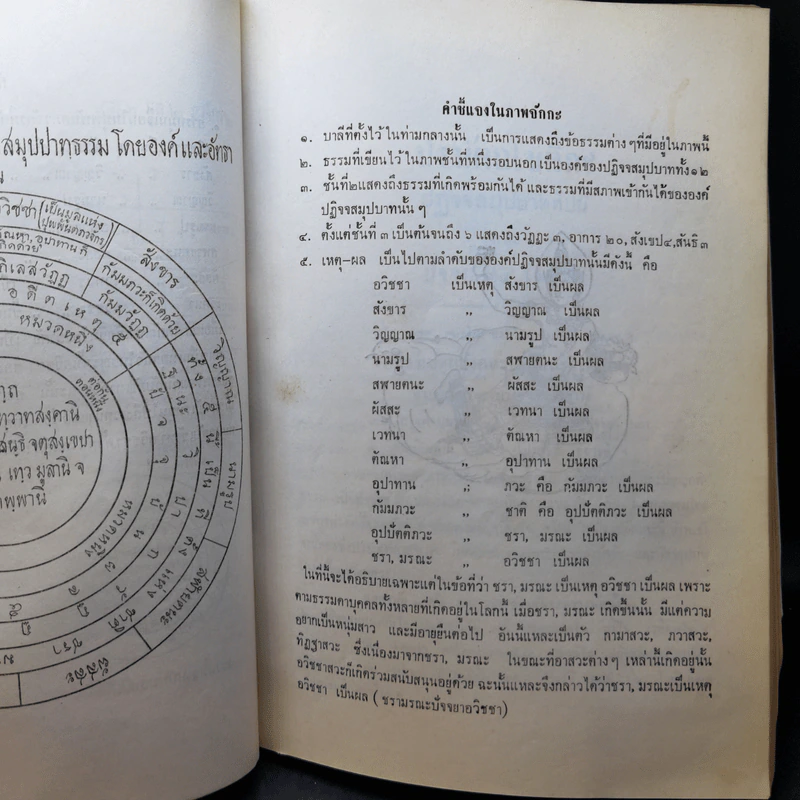 สมุปปาทฺธรรม โดยองค์ และอัทธา
เป็นมูลแห่ง
สังขาร
กัมมภวะก็เกิดด้วย
กัมมวัฏฏ
กิเลสวัฏฏ
อดีตเหตุ ๕
หมวดหนึ่ง
วิญญาณ
นามรูป
สฬายตนะ
ผัสสะ
ชาติ
ชรา
ทวาทสงฺคานิ
สนฺธิ จตุสงฺเขปา
เทฺว มูลานิ จ
คำชี้แจงในภาพจักกะ
๑. บาลีที่ตั้งไว้ในท่ามกลางนั้น เป็นการแสดงถึงข้อธรรมต่าง ๆที่มีอยู่ในภาพนี้
๒. ธรรมที่เขียนไว้ในภาพชั้นที่หนึ่งรอบนอก เป็นองค์ของปฏิจจสมุปบาททั้ง ๑๒
๓. ชั้นที่๒แสดงถึงธรรมที่เกิดพร้อมกันได้ และธรรมที่มีสภาพเข้ากันได้ขององค์
ปฏิจจสมุปบาทนั้น ๆ
๔. ตั้งแต่ชั้นที่ ๓ เป็นต้นจนถึง ๖ แสดงถึงวัฏฏะ ๓, อาการ ๒๐, สังเขป๔,สันธิ ๓
๕. เหตุ-ผล เป็นไปตามลำดับขององค์ปฏิจจสมุปบาทนั้นมีดังนี้ คือ
อวิชชา เป็นเหตุ สังขาร เป็นผล
สังขาร ,, วิญญาณ เป็นผล
วิญญาณ ,, นามรูป เป็นผล
นามรูป ,, สฬายตนะ เป็นผล
สฬายตนะ ,, ผัสสะ เป็นผล
ผัสสะ ,, เวทนา เป็นผล
เวทนา ,, ตัณหา เป็นผล
ตัณหา ,, อุปาทาน เป็นผล
อุปาทาน ,, ภวะ คือ กัมมภวะ เป็นผล
กัมมภวะ ,, ชาติ คือ อุปปัตติภวะ เป็นผล
อุปปัตติภวะ ,, ชรา, มรณะ เป็นผล
ชรา, มรณะ ,, อวิชชา เป็นผล
ในที่นี้จะได้อธิบายเฉพาะแต่ในข้อที่ว่า ชรา, มรณะ เป็นเหตุ อวิชชา เป็นผล เพราะ
ตามธรรมดาบุคคลทั้งหลายที่เกิดอยู่ในโลกนี้ เมื่อชรา, มรณะ เกิดขึ้นนั้น มีแต่ความ
อยากเป็นหนุ่มสาว และมีอายุยืนต่อไป อันนี้แหละเป็นตัว กามาสวะ, ภวาสวะ,
ทิฏฐาสวะ ซึ่งเนื่องมาจากชรา, มรณะ ในขณะที่อาสวะต่างๆ เหล่านี้เกิดอยู่นั้น
อวิชชาสวะก็เกิดร่วมสนับสนุนอยู่ด้วย ฉะนั้นแหละจึงกล่าวได้ว่าชรา, มรณะเป็นเหตุ
อวิชชา เป็นผล ( ชรามรณะปัจจยาอวิชชา)